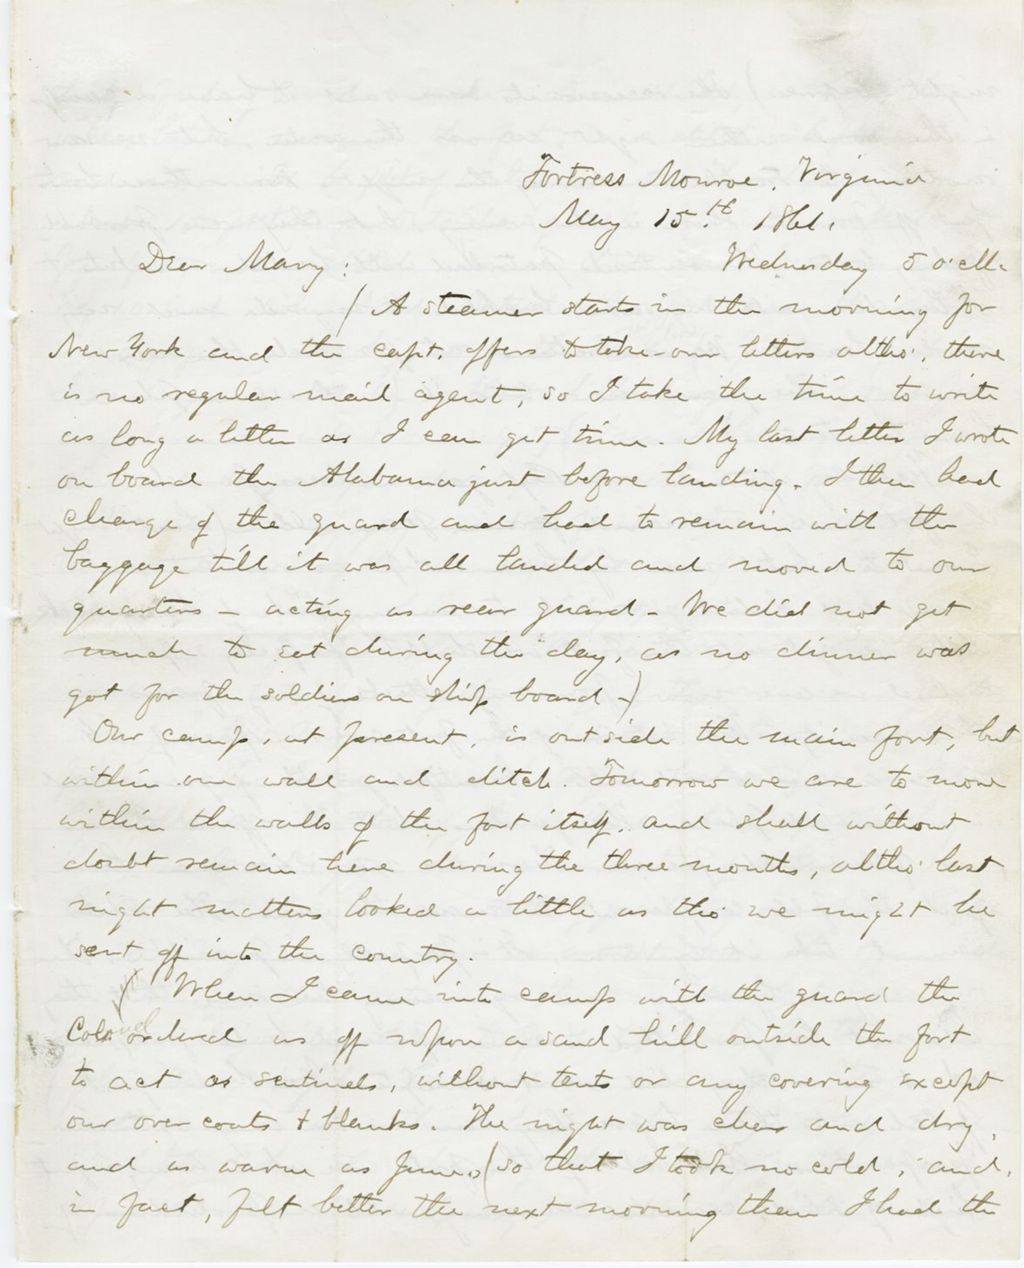 Fortress Monroe, Virginia
May 15.th 1861.
Dear Mary: Wednesday 5 o'clk.
( A steamer starts in the morning for
New York and the capt. offers to take our letters altho', there
is no regular mail agent, so I take the time to write
as long a letter as I can get time. My last letter I wrote
on board the Alabama just before landing. I then had
charge of the guard and had to remain with the
baggage till it was all landed and moved to our
quarters – acting as rear guard – We did not get
much to eat during the day, as no dinner was
got for the soldiers on ship board –)
Our camp, at present, is outside the main fort, but
within one wall and ditch. Tomorrow we are to move
within the walls of the fort itself. and shall without
doubt remain here during the three months, altho' last
night matters looked a little as tho' we might be
sent off into the country.
( When I came into camp with the guard the
Colonel ordered us off upon a sand hill outside the fort
to act as sentinels, without tents or any covering except
our over coats & blanks. The night was clear and dry,
and as warm as June, (so that I took no cold, and,
in fact, felt better the next morning than I had the